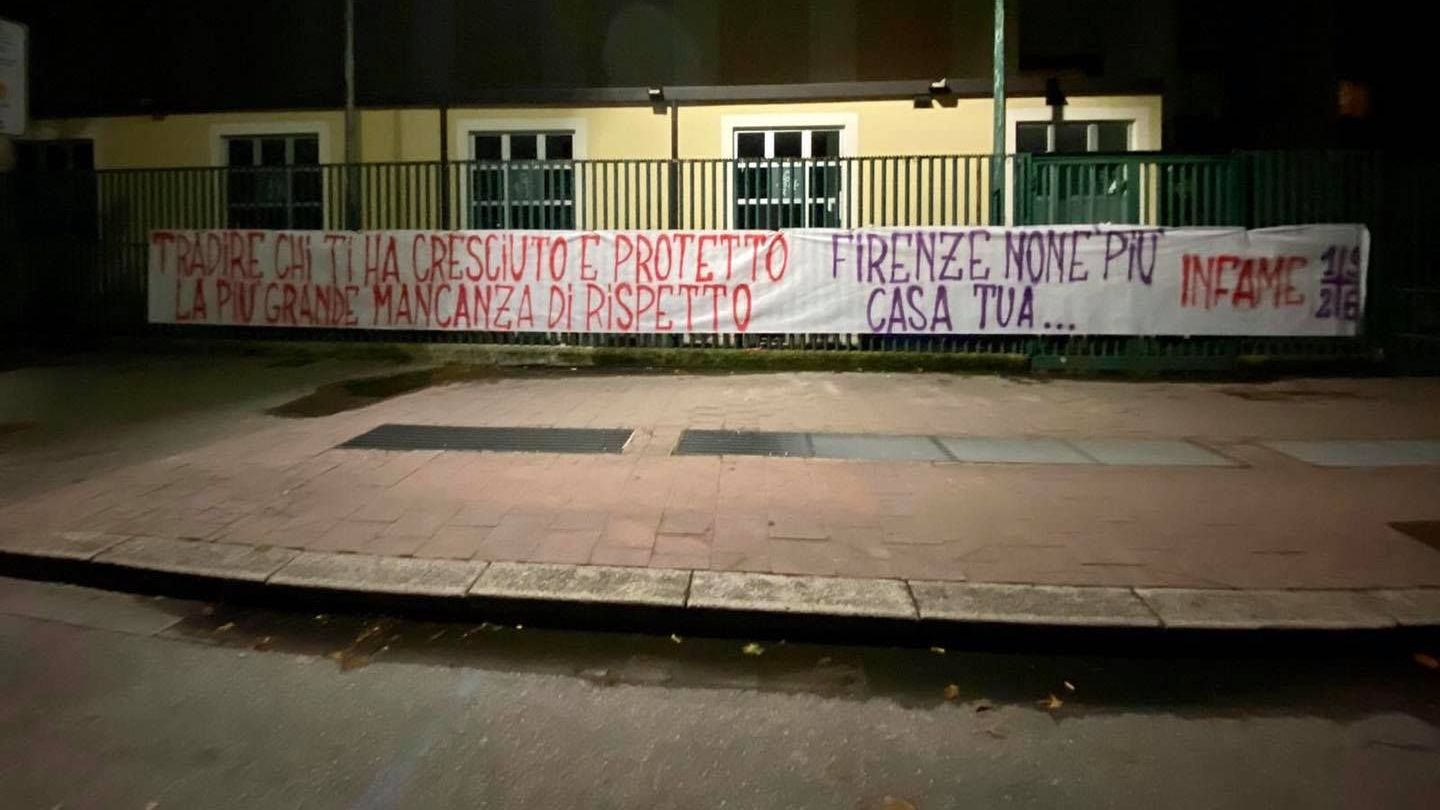 TRADIRE CHI TI HA CRESCIUTO E PROTETTO
LA PIU GRANDE MANCANZA DI RISPETTO
FIRENZE NON E' PIU'
CASA TUA...
INFAME
19
26